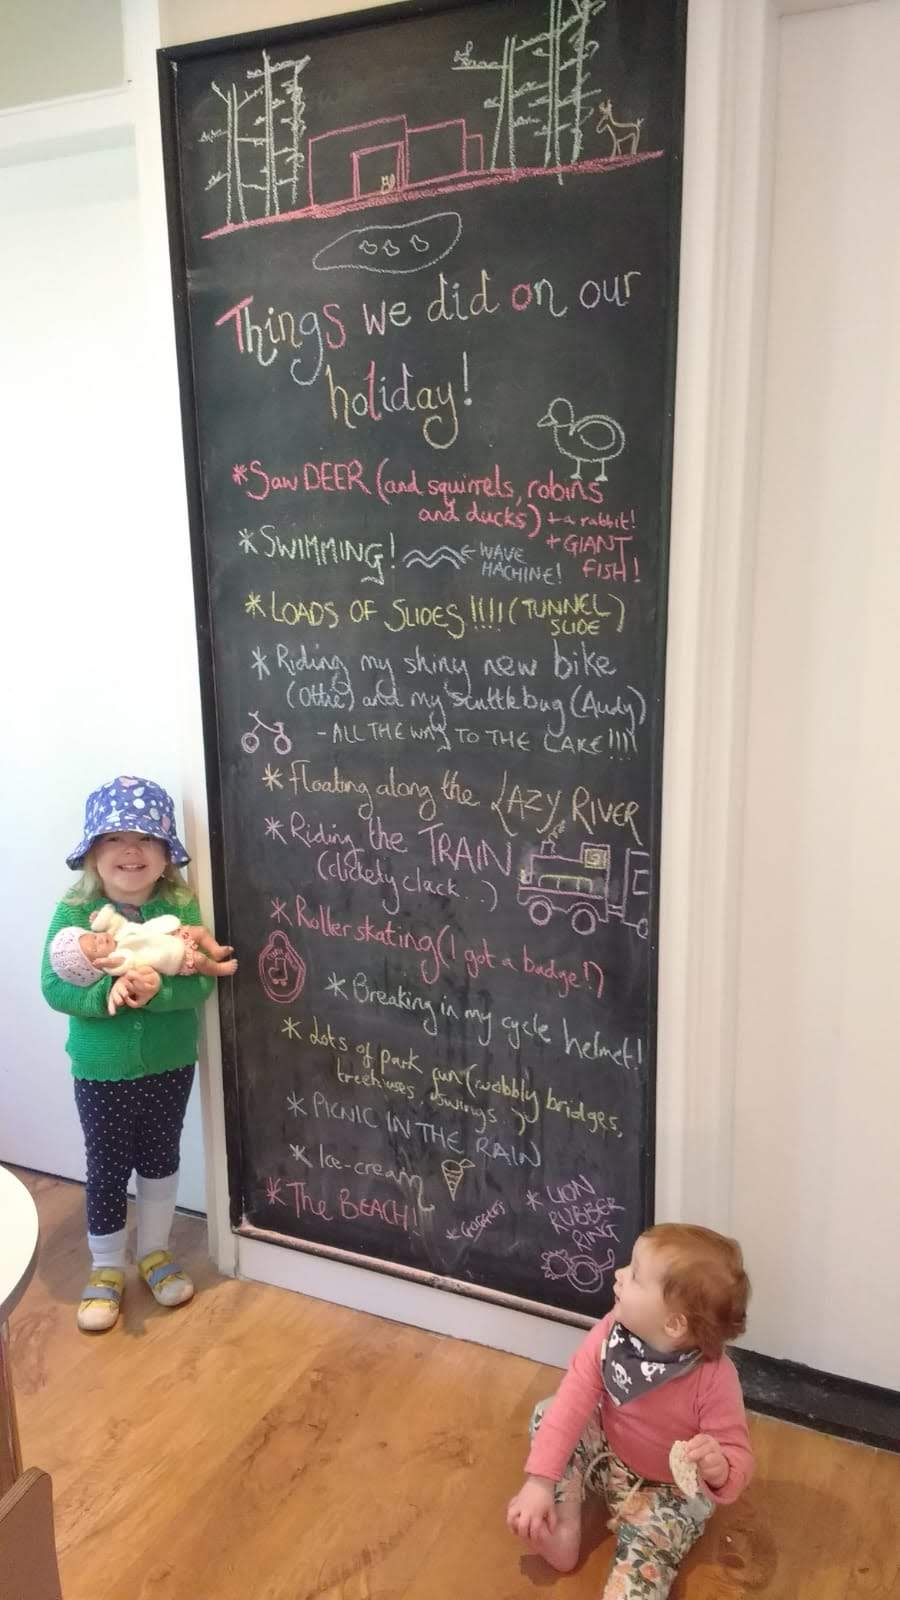 Things we did on our
holiday!
* Saw DEER (and squirrels, robins
and ducks) + a rabbit!
+ GIANT
FISH!
* SWIMMING! ← WAVE
MACHINE!
* LOADS OF SLIDES !!!! (TUNNEL
SLIDE)
* Riding my shiny new bike
(Ottie) and my scuttlebug (Audy)
- ALL THE WAY TO THE LAKE!!!!
* Floating along the LAZY RIVER
* Riding the TRAIN
(clickety clack...)
* Roller skating (I got a badge!)
* Breaking in my cycle helmet!
* Lots of park fun (wobbly bridges,
treehouses, swings..)
* PICNIC IN THE RAIN
* Ice-cream
* The BEACH!
* GOGGLES
* LION
RUBBER
RING